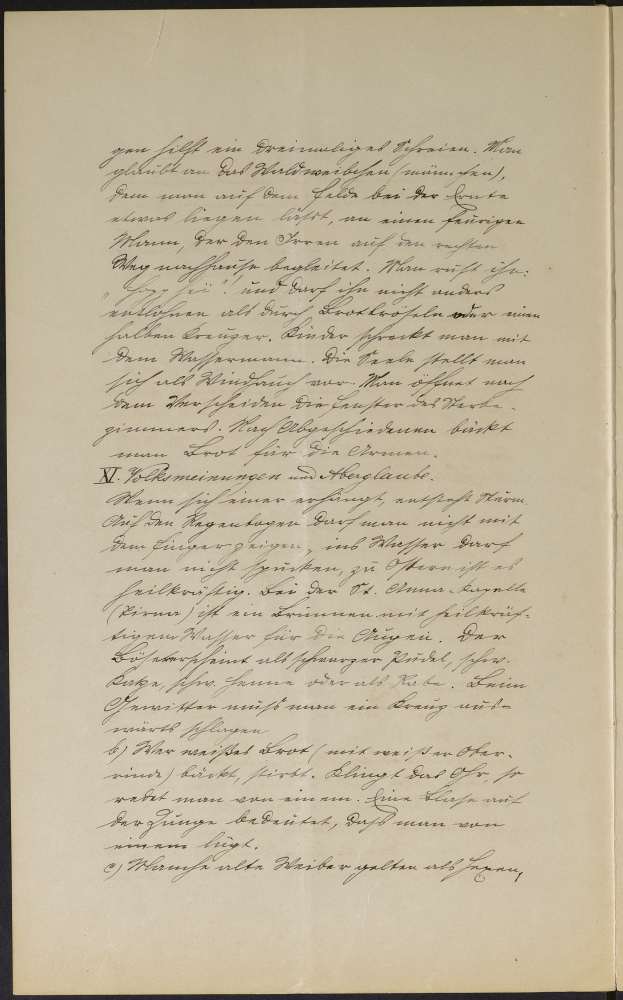 gen hilft ein dreimaliges Schreien. Man
glaubt an das Waldweibchen (männchen),
dem man auf dem Felde bei der Ernte
etwas liegen läßt, an einen feurigen
Mann, der den Irren auf den rechten
Weg nachhause begleitet. Man ruft ihn:
und darf ihn nicht anders
entlohnen als durch Brotbröseln oder einen
halben Kreuzer. Kinder schreckt man mit
dem Wassermann. Die Seele stellt man
sich als Windhauch vor. Man öffnet nach
dem Verscheiden die Fenster des Sterbe-
zimmers. Nach Abgeschiedenen bäckt
man Brot für die Armen.
XI. Volksmeinungen und Aberglaube.
Wenn sich einer erhängt, entsteht Sturm.
Auf den Regenbogen darf man nicht mit
dem Finger zeigen, ins Wasser darf
man nicht spucken, zu Ostern ist es
heilkräftig. Bei der St. Anna-Kapelle
(Pirna) ist ein Brunnen mit heilkräf-
tigem Wasser für die Augen. Der
Böse erscheint als schwarzer Pudel, schw.
Katze, schw. Henne oder als Rabe. Beim
Gewitter muß man ein Kreuz aus-
wärts schlagen
b) Wer weißes Brot (mit weißer Ober-
rinde) bäckt, stirbt. Klingt das Ohr, so
redet man von einem. Eine Blase auf
der Zunge bedeutet, daß man von
einem lügt.
c) Manche alte Weiber gelten als Hexen,